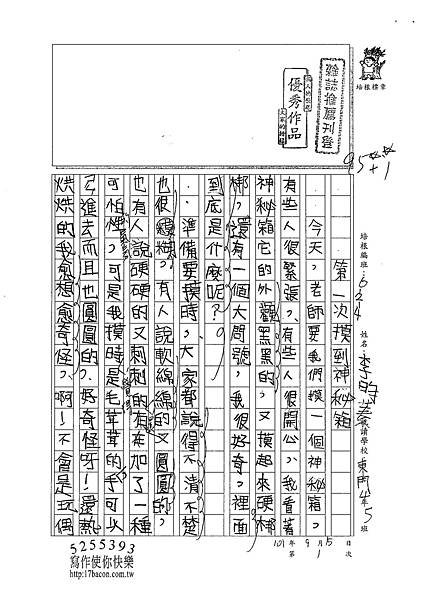 培根標章
雜誌推薦刊登
優秀作品
95
+1
培根編班：624
姓名
就讀學校 東門
年5班
101年9月15日
第1次
第一次摸到神秘箱
今天，老師要我們摸一個神秘箱。
有些人很緊張，有些人很開心，我看著
神秘箱它的外觀黑黑的，又摸起來硬梆
梆，還有一個大問號，我很好奇，裡面
到底是什麼呢？
準備要摸時，大家都說得不清不楚
也很模糊，有人說軟綿綿的又圓圓的，
也有人說硬硬的又刺刺的有在加了一種
可怕性，可是我摸時是毛茸茸的手可以
凸進去而且也圓圓的，好奇怪呀！還熱
烘烘的我愈想愈奇怪，啊！不會是玩偶
5255393
寫作使你快樂
http://17bacon.com.tw